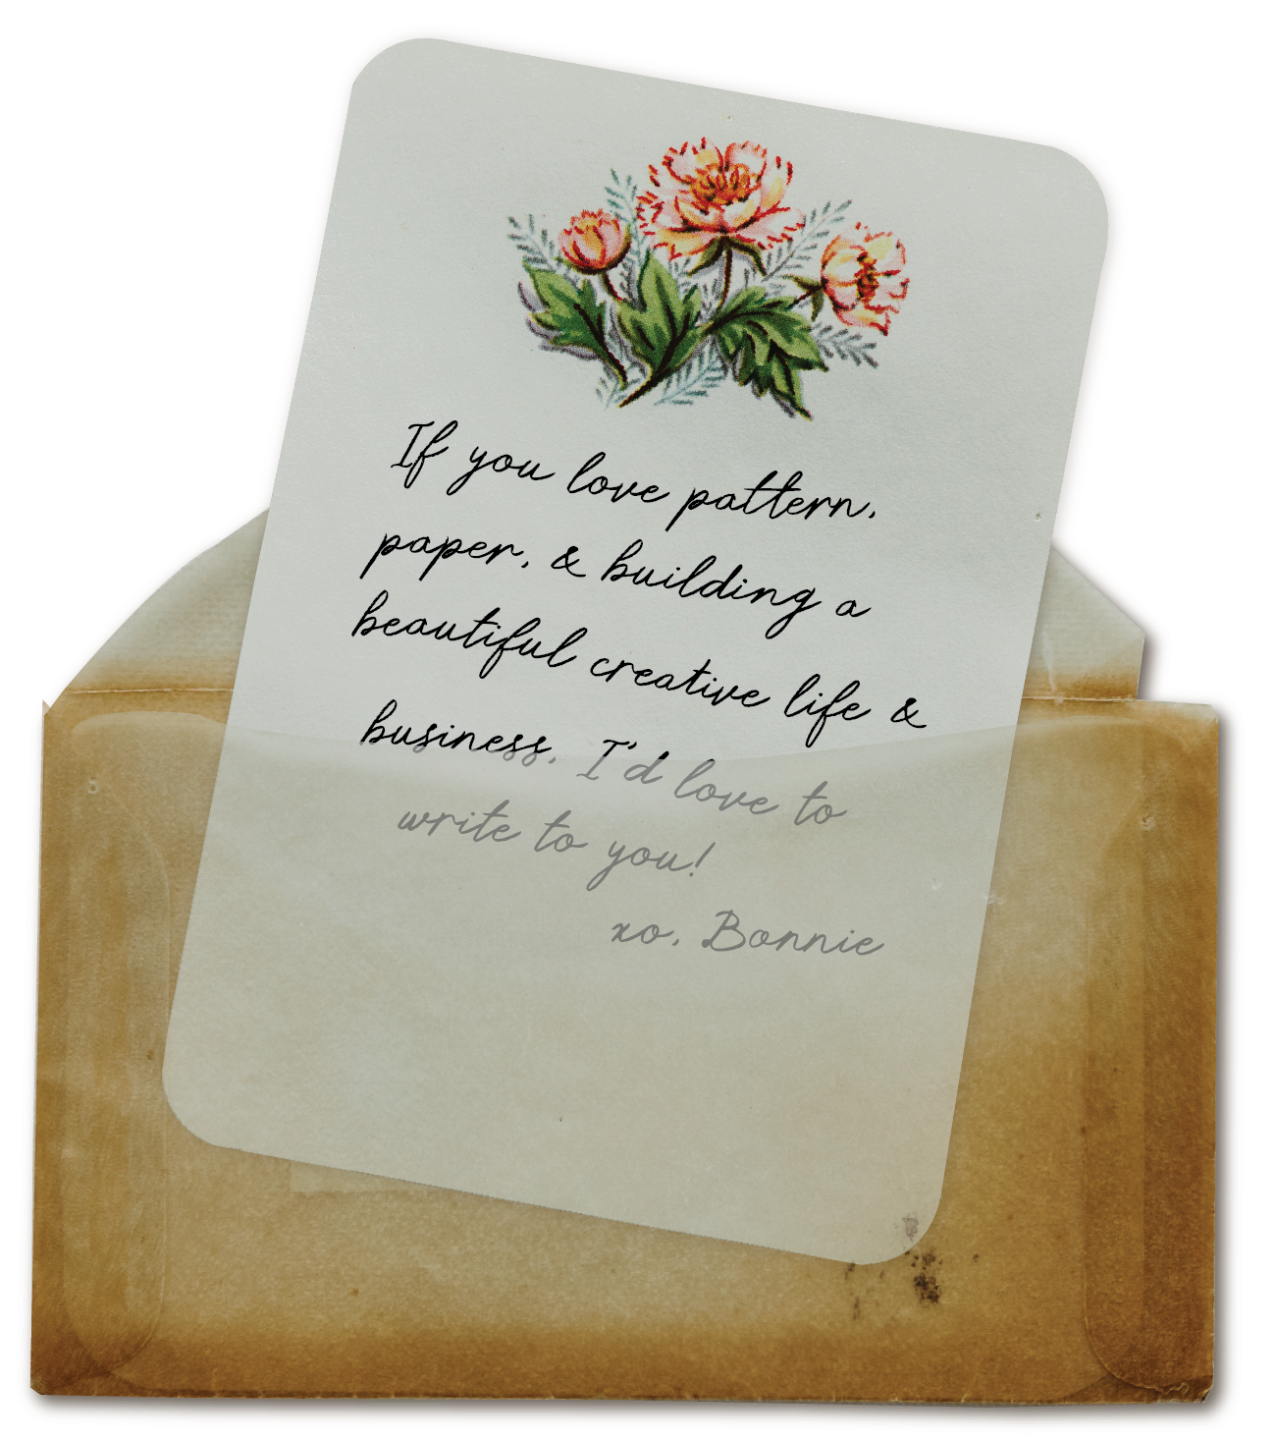 If you love pattern,
paper, & building a
beautiful creative life &
business, I'd love to
write to you!
xo, Bonnie